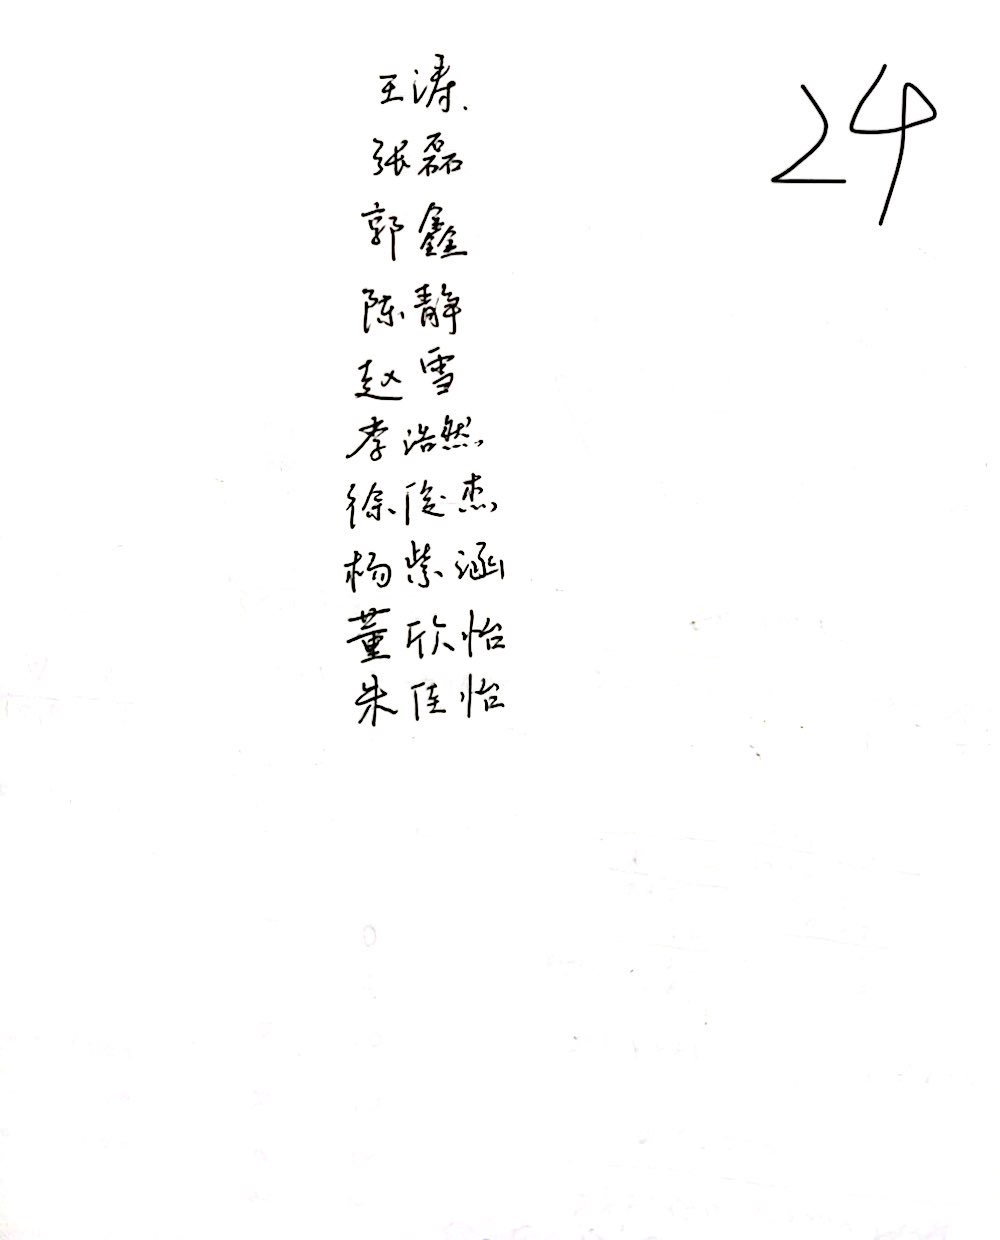 王涛.
24
张磊
郭鑫
陈静
赵雪
李浩然
徐俊杰
杨紫涵
董欣怡
朱佳怡